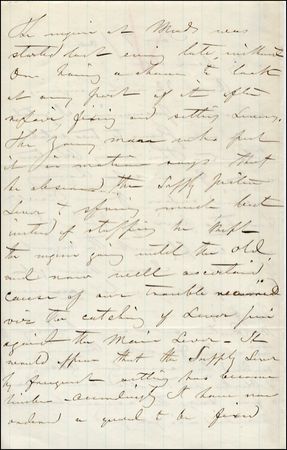 The engine at Mud's was
started last evening late, without
Our having a chance to look
at any part of it after
fixing and setting Levers,
The young man who put
it in motion says that
he observed the Supply Piston
Lever & spring much bent
instead of stopping he kept
the engine going until the old
and now well ascertained
cause of our trouble
viz the catching of Lever pin
against the Main Lever - It
would appear that the Supply Lever
by frequent setting has become
limber - accordingly I have now
ordered a guard to be fixed